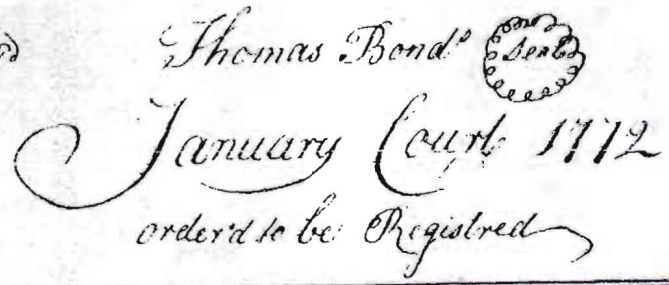 Thomas Bond Seal
January Court 1772
order'd to be Registred